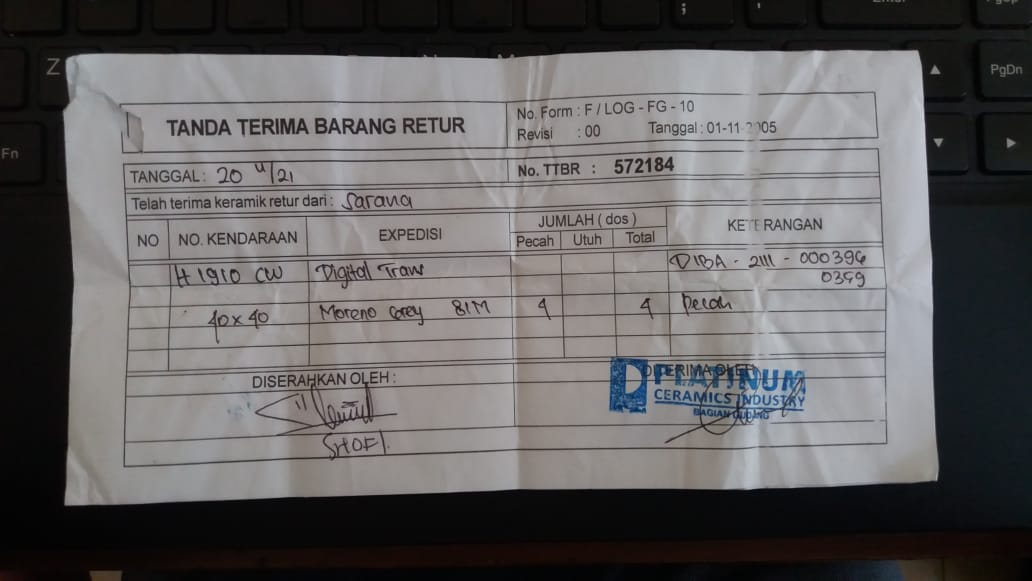 TANDA TERIMA BARANG RETUR
No. Form : F / LOG - FG - 10
Revisi : 00 Tanggal : 01-11-2005
TANGGAL : 20 11/21
No. TTBR : 572184
Telah terima keramik retur dari : Sarana
NO NO. KENDARAAN EXPEDISI JUMLAH ( dos ) KETERANGAN
Pecah Utuh Total
H 1910 CW Digital Trans DIBA - 2111 - 000396
0399
40x40 Moreno Grey 81M 4 4 Pecah
DISERAHKAN OLEH : DITERIMA OLEH
PLATINUM
CERAMICS INDUSTRY
BAGIAN GUDANG
SHOFI.
Z
Fn
PgDn